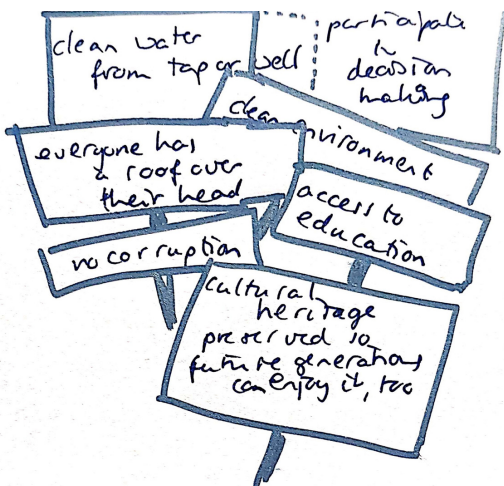 clean water
from tap or well
participate
in
decision
making
clean environment
everyone has
a roof over
their head
access to
education
no corruption
cultural
heritage
preserved so
future generations
can enjoy it, too